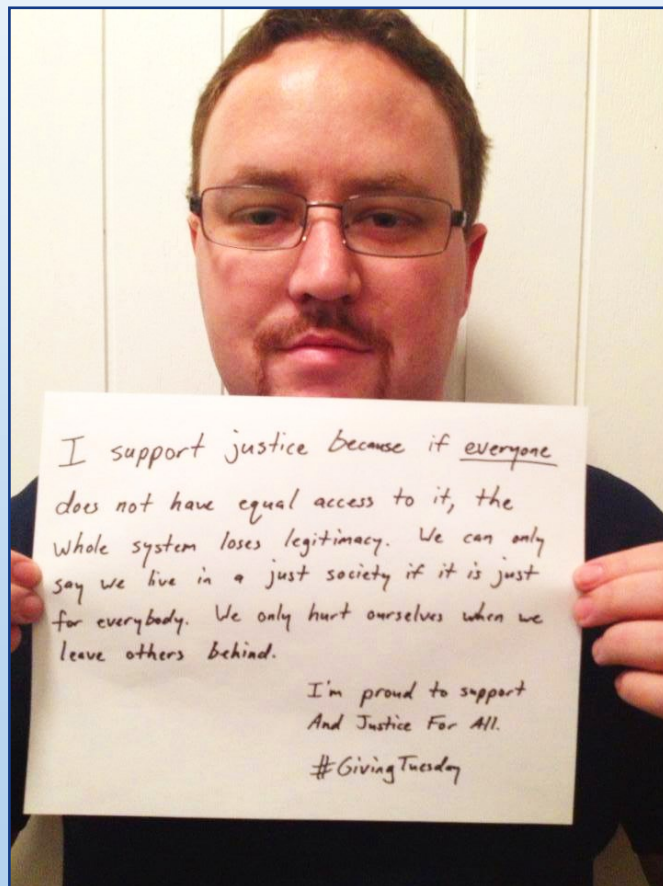 I support justice because if everyone
does not have equal access to it, the
whole system loses legitimacy. We can only
say we live in a just society if it is just
for everybody. We only hurt ourselves when we
leave others behind.
I'm proud to support
And Justice For All.
#GivingTuesday